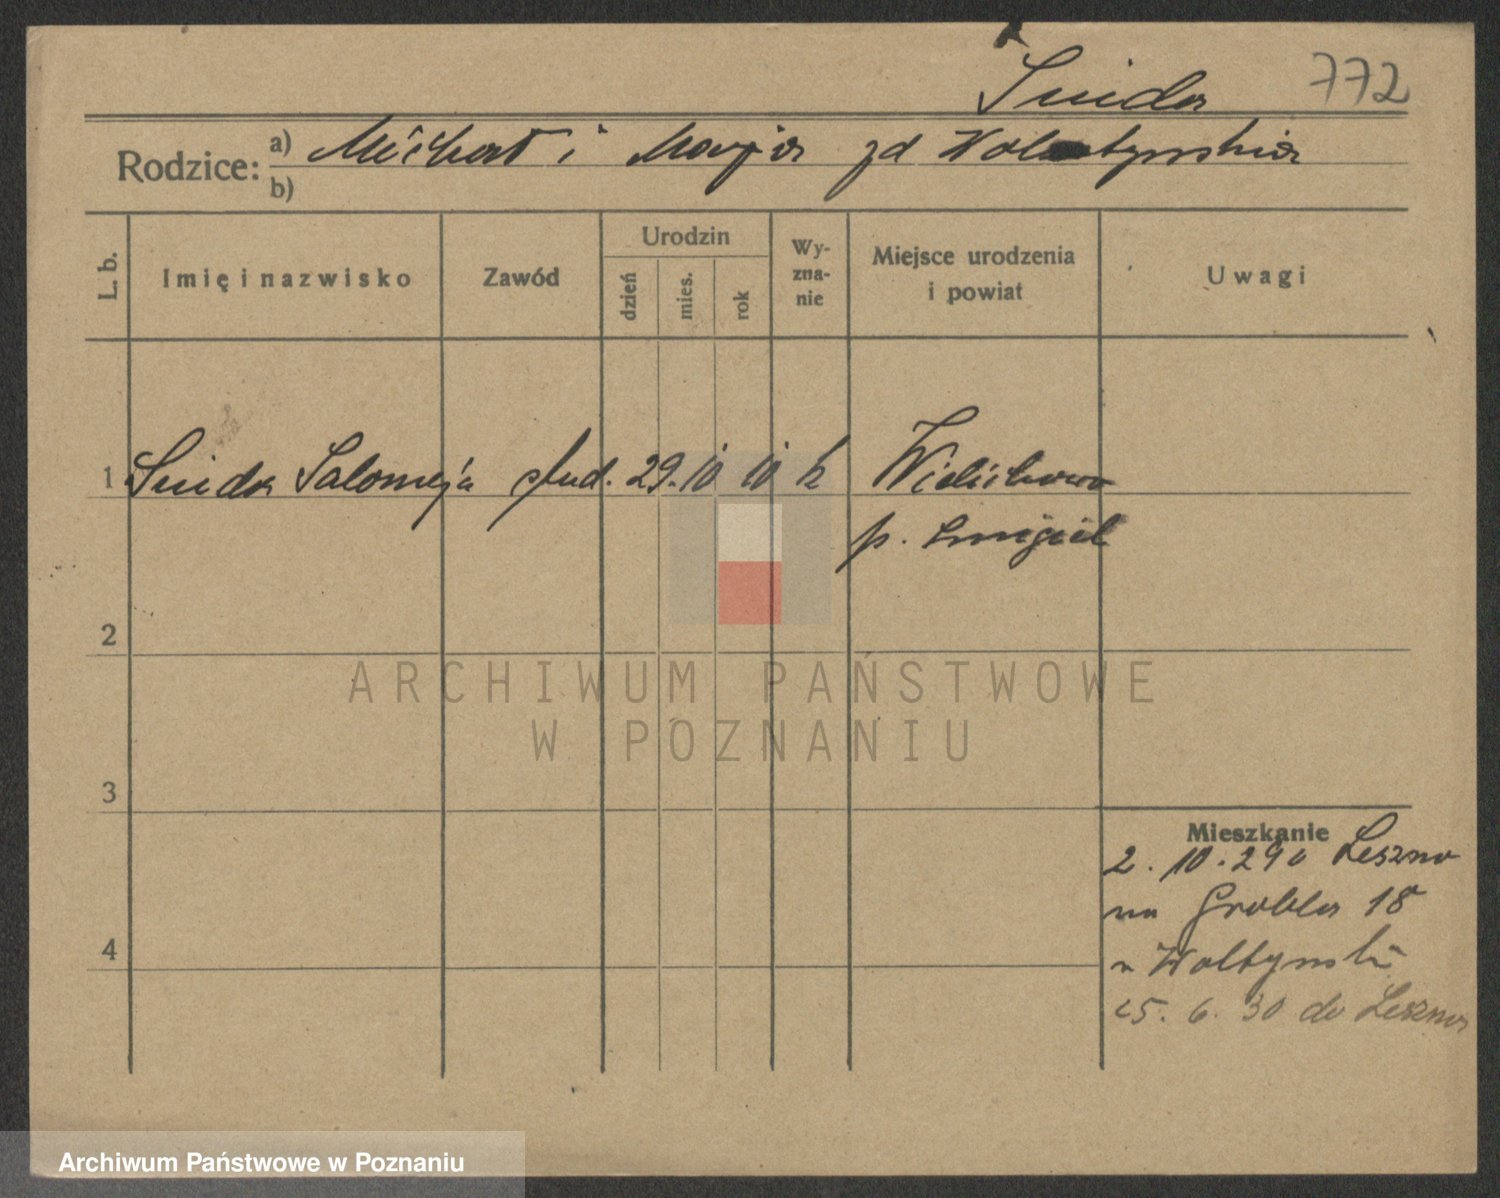 Suida 772
Rodzice: a) Michał i Maryja zd Woltynska
b)
L. b. Imię i nazwisko Zawód Urodzin dzień mies. rok Wyznanie Miejsce urodzenia i powiat Uwagi
1 Suida Salomeja stud. 29. 10 10 k Wielichowo
p. Smigiel
2
ARCHIWUM PAŃSTWOWE
W POZNANIU
3
Mieszkanie
2. 10. 29 Leszno
na Grobla 18
4
u Woltynski
25. 6. 30 do Leszna
Archiwum Państwowe w Poznaniu